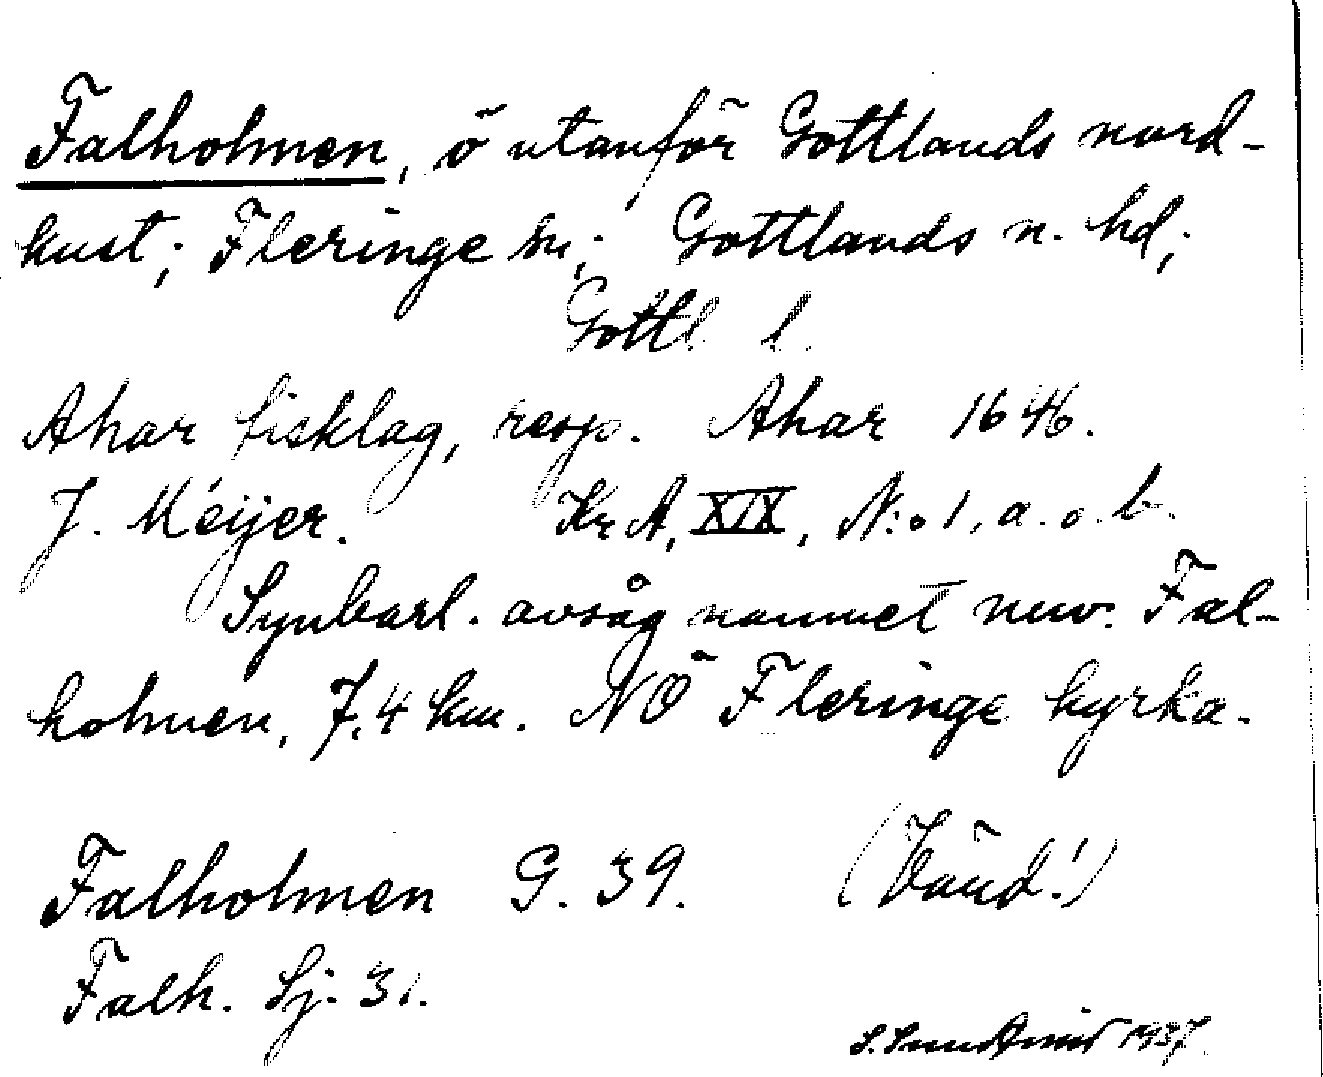 Falholmen, ö utanför Gottlands nord-
kust; Fleringe sn; Gottlands n. hd;
Gottl. l.
Ahar fisklag, resp. Ahar 1646.
J. Meijer. Kr A, XIX, N:o 1, a. o. b.
Synbarl. avsåg namnet nuv. Fal-
holmen, 7,4 km. NÖ Fleringe kyrka.
Falholmen G. 39. (Vänd!)
Falh. Sj. 31.
1937